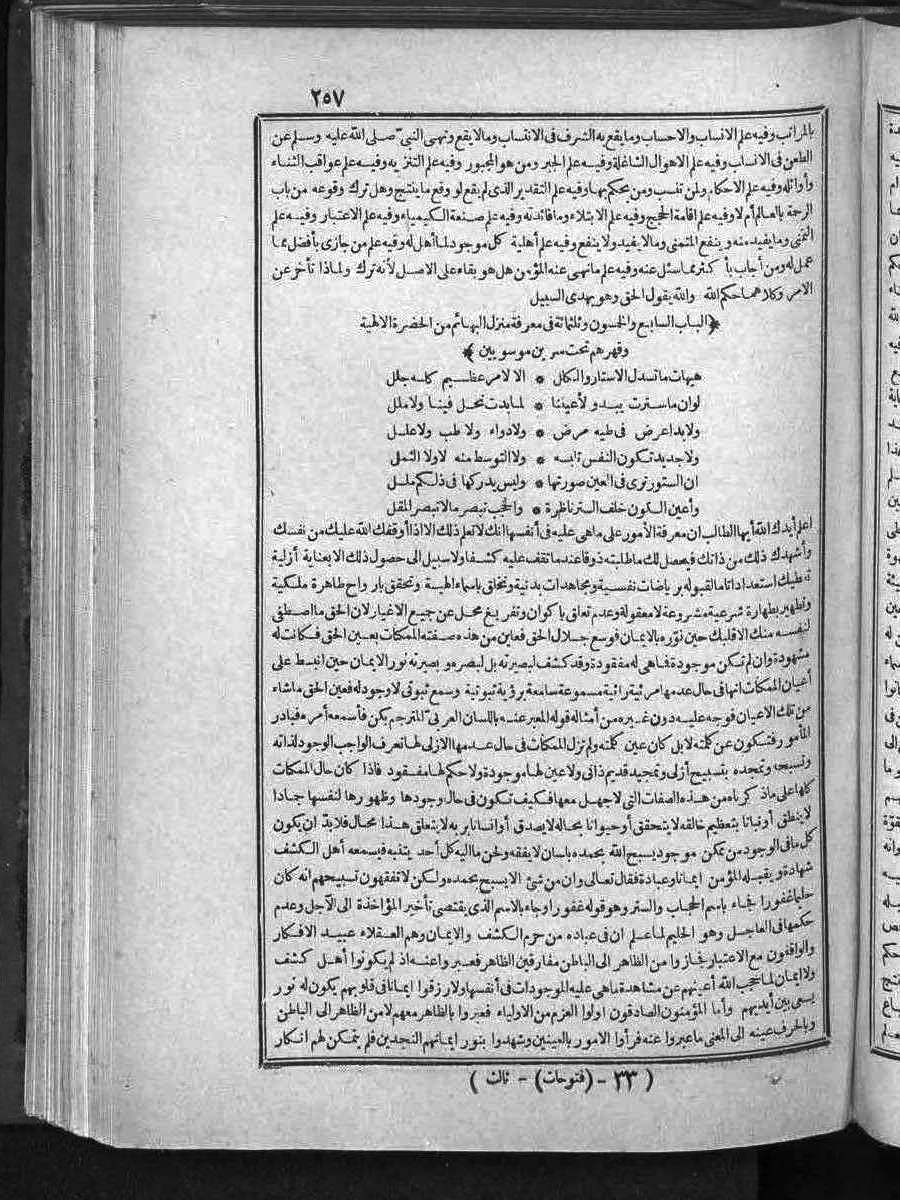 ٢٥٧
بالمراتب وفيه علم الانساب والاحساب وما يقع به الشرف فى الانتساب وما لا يقع ونهى النبى صلى الله عليه وسلم عن
الطعن فى الانساب وفيه علم الاهوال الشاغلة وفيه علم الجبر ومن هو المجبور وفيه علم التنزيه وفيه علم عواقب الثناء
وأوائله وفيه علم الاحكام ولمن تنسب ومن يحكم بها وفيه علم التقدير الذى لم يقع لو وقع ما ينتج وهل ترك وقوعه من باب
الرحمة بالعالم أم لا وفيه علم اقامة الحجج وفيه علم الابتلاء وما فائدته وفيه علم صنعة الكيمياء وفيه علم الاعتبار وفيه علم
التمنى وما يفيد منه وينفع المتمنى وما لا يفيد ولا ينفع وفيه علم أهلية كل موجود لما أهل له وفيه علم من جازى بأفضل مما
عمل له ومن أجاب بأكثر مما سئل عنه وفيه علم ما نهى عنه المؤمن هل هو بقاء على الاصل لأنه ترك ولماذا تأخر عن
الامر وكلاهما حكم الله والله يقول الحق وهو يهدى السبيل
﴿الباب السابع والخمسون وثلثمائة فى معرفة منزل البهائم من الحضرة الالهية
وقهرهم تحت سرين موسويين﴾
هيهات ما تسدل الاستار والكلل * الا لامر عظيم كله جلل
لو ان ما سترت يبدو لأعيننا * لما بدت نحل فينا ولا ملل
ولا بدا عرض فى طيه مرض * ولا دواء ولا طب ولا علل
ولا جديد تكون النفس تلبسه * ولا التوسط منه لا ولا السمل
ان الستور ترى فى العين صورتها * وليس يدركها فى ذلكم ملل
وأعين الكون خلف الستر ناظرة * والحجب تبصر ما لا تبصر المقل
اعلم أيدك الله أيها الطالب ان معرفة الأمور على ما هى عليه فى أنفسها انك لا تعلم ذلك الا اذا أوقفك الله عليك من نفسك
وأشهدك ذلك من ذاتك فيحصل لك ما طلبته ذوقا عندما تقف عليه كشفا ولا سبيل الى حصول ذلك الا بعناية أزلية
تعطيك استعدادا تاما لقبوله برياضات نفسية ومجاهدات بدنية وتخلق باسماء الهية وتحقق بارواح طاهرة ملكية
وتطهير بطهارة شرعية مشروعة لا معقولة وعدم تعلق باكوان وتفريغ محل عن جميع الاغيار لان الحق ما اصطفى
لنفسه منك الا قلبك حين نوره بالايمان فوسع جلال الحق فعاين من هذه صفته الممكنات بعين الحق فكانت له
مشهودة وان لم تكن موجودة فما هى له مفقودة وقد كشف لبصيرته بل لبصره وبصيرته نور الايمان حين انبسط على
أعيان الممكنات انها فى حال عدمها مرئية رائية مسموعة سامعة برؤية ثبوتية وسمع ثبوتى لا وجود له فعين الحق ما شاء
من تلك الاعيان فوجه عليه دون غيره من أمثاله قوله المعبر عنه باللسان العربى المترجم بكن فأسمعه أمره فبادر
المأمور فتكون عن كلمته لا بل كان عين كلمته ولم تزل الممكنات فى حال عدمها الازلى لها تعرف الواجب الوجود لذاته
وتسبحه وتمجده بتسبيح أزلى وتمجيد قديم ذاتى ولا عين لها موجودة ولا حكم لها مفقود فاذا كان حال الممكنات
كلها على ما ذكرناه من هذه الصفات التى لا جهل معها فكيف تكون فى حال وجودها وظهورها لنفسها جمادا
لا ينطق أو نباتا بتعظيم خالقه لا يتحقق أو حيوانا بحاله لا يصدق أو انسانا بربه لا يتعلق هذا محال فلا بد ان يكون
كل ما فى الوجود من ممكن موجود يسبح الله بحمده بلسان لا يفقه ولحن ما اليه كل أحد يتنبه فيسمعه أهل الكشف
شهادة ويقبله المؤمن ايمانا وعبادة فقال تعالى وان من شئ الا يسبح بحمده ولكن لا تفقهون تسبيحهم انه كان
حليما غفورا فجاء باسم الحجاب والستر وهو قوله غفورا وجاء بالاسم الذى يقتضى تأخير المؤاخذة الى الآجل وعدم
حكمها فى العاجل وهو الحليم لما علم ان فى عباده من حرم الكشف والايمان وهم العقلاء عبيد الافكار
والواقفون مع الاعتبار فجازوا من الظاهر الى الباطن مفارقين الظاهر فعبروا عنه اذ لم يكونوا أهل كشف
ولا ايمان لما حجب الله أعينهم عن مشاهدة ما هى عليه الموجودات فى أنفسها ولا رزقوا ايمانا فى قلوبهم يكون له نور
يسعى بين أيديهم وأما المؤمنون الصادقون اولوا العزم من الاولياء فعبروا بالظاهر معهم لا من الظاهر الى الباطن
وبالحرف عينه الى المعنى ما عبروا عنه فرأوا الامور بالعينين وشهدوا بنور ايمانهم النجدين فلم يتمكن لهم انكار
( ٣٣ - (فتوحات) - ثالث )